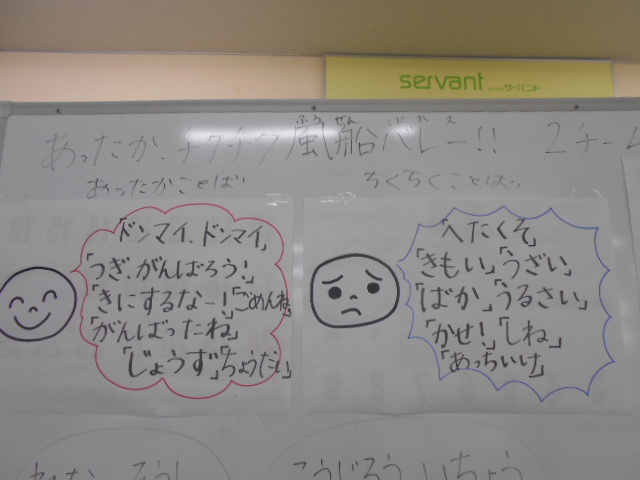 servant 株式会社サーバント
あったか.チクチク風船バレー!! 2チーム
ふうせんばれえ
あったかことば
ちくちくことば
「ドンマイ.ドンマイ」
「つぎ.がんばろう!」
「きにするなー!」「ごめんね」
「がんばったね」
「じょうず」「ちょうだい」
「へたくそ」
「きもい」「うざい」
「ばか」「うるさい」
「かせ!」「しね」
「あっちいけ」
こうじろう いちょう